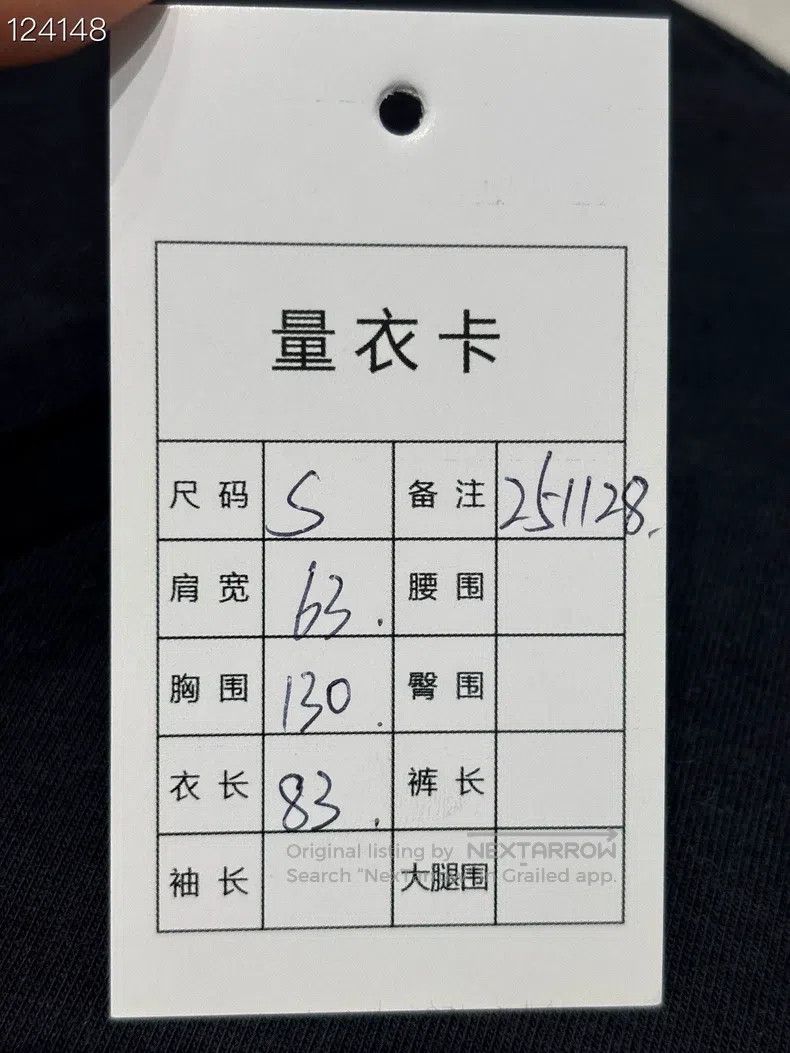 124148
量衣卡
尺码 S 备注 251128.
肩宽 63. 腰围
胸围 130. 臀围
衣长 83. 裤长
Original listing by NEXTARROW
袖长 大腿围
Search "NexTArrow" on Grailed app.